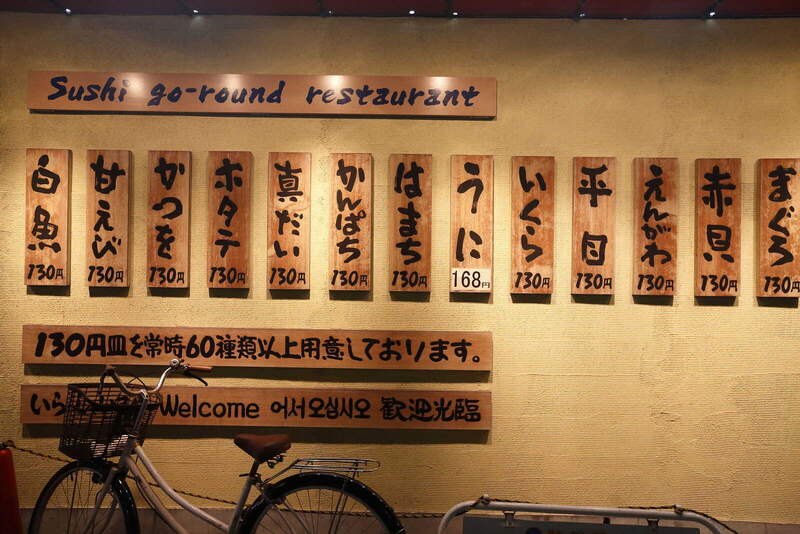 Sushi go-round restaurant
白魚 130円
甘えび 130円
かつを 130円
ホタテ 130円
真だい 130円
かんぱち 130円
はまち 130円
うに 168円
いくら 130円
平目 130円
えんがわ 130円
赤貝 130円
まぐろ 130円
130円皿を常時60種類以上用意しております。
いら Welcome 어서오십시오 歡迎光臨